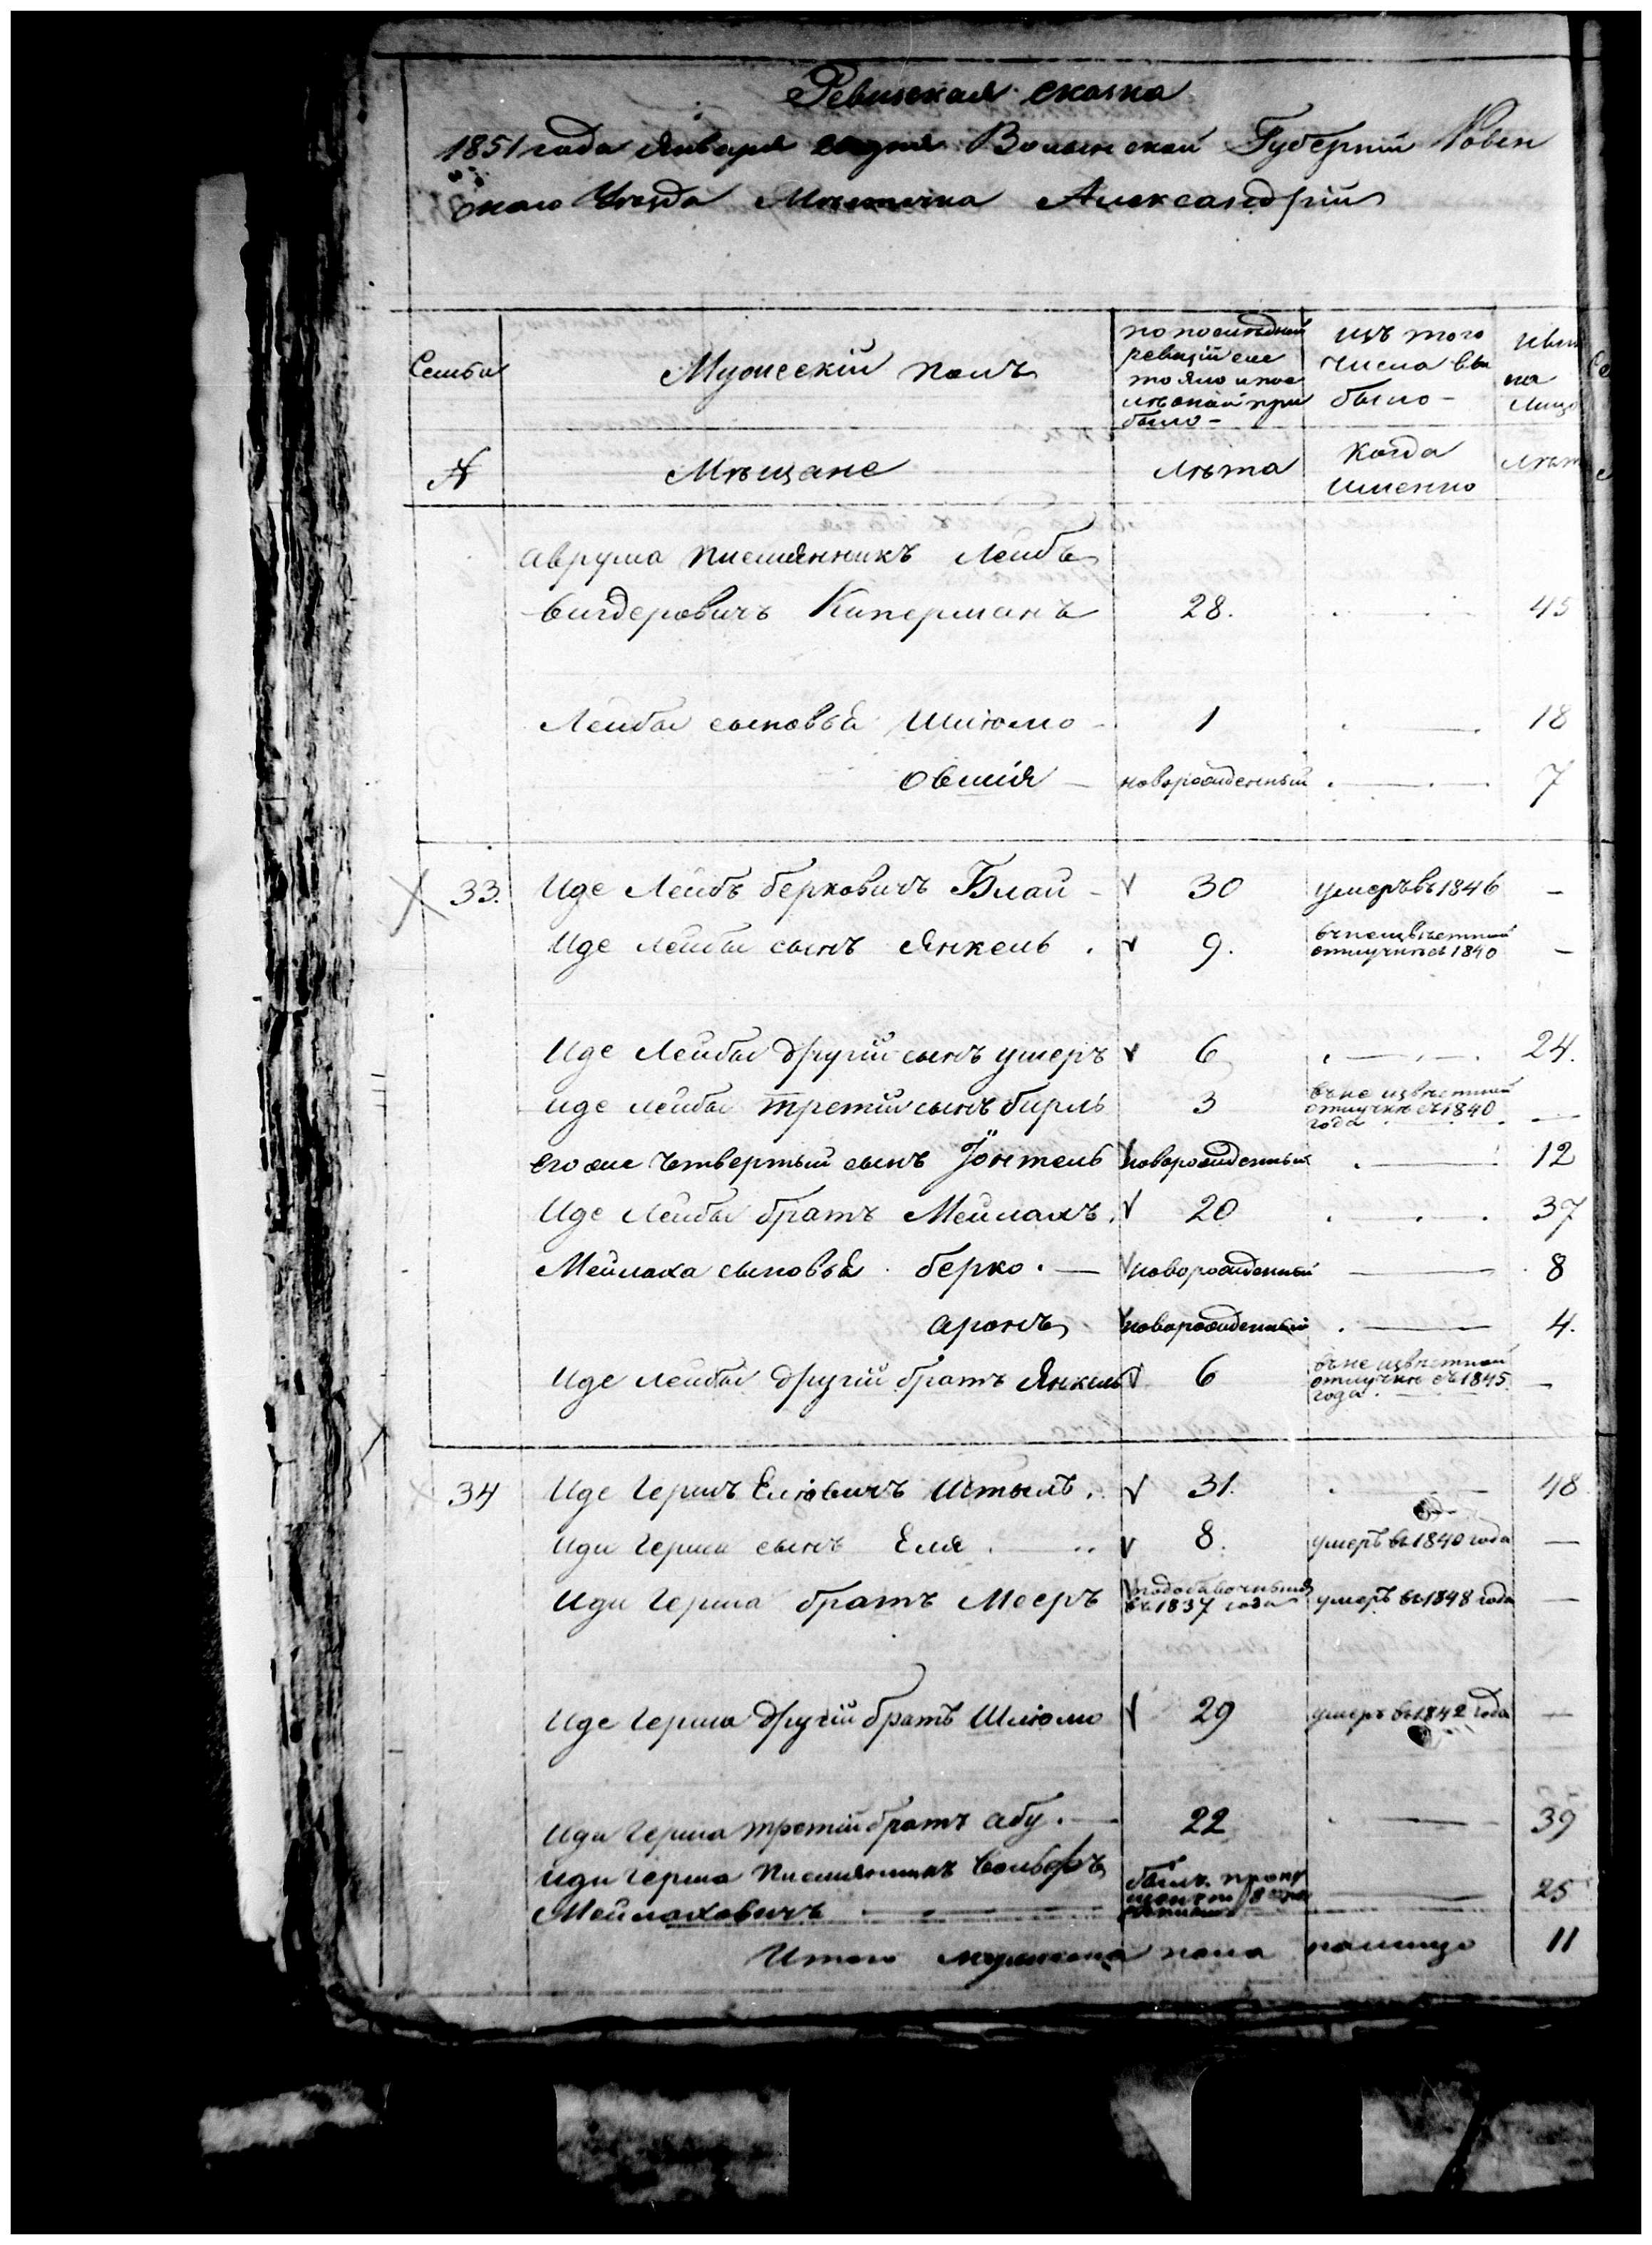 Ревизская сказка
1851 года Января дня Волынской Губернии Ровен
скаго Уезда Местечка Александрии
Семьи
Мужескій полъ
по последней
ревизіи сос
тояло и пос
ле оной при
было -
изъ того
числа вы
было -
ныне
на
лицо
№
Мѣщане
лѣта
Когда
именно
лѣт
Аврума племянникъ Лейбъ
Вигдеровичъ Киперманъ 28. 45
Лейбы сыновья Шлюмо - 1 18
Овшія - новорожденный 7
33. Иде Лейбъ Берковичъ Блай - 30 умеръ въ 1846 -
Иде Лейбы сынъ Янкель . 9. въ неизвѣстной
отлучкѣ съ 1840 -
Иде Лейбы другій сынъ Ушеръ 6 24.
Иде Лейбы третій сынъ Бирль 3 въ не извѣстной
отлучкѣ съ 1840
года -
его же четвертый сынъ Іонтель новорожденный 12
Иде Лейбы братъ Мейлахъ. 20 37
Мейлаха сыновья Берко. - новорожденный 8
Аронъ новорожденный 4.
Иде Лейбы другій братъ Янкель 6 въ не извѣстной
отлучкѣ съ 1845
года. -
34 Иде Гершъ Еліовичъ Штыль. 31. 48
Иди Герша сынъ Еля . 8. умеръ въ 1840 года -
Иди Герша братъ Мееръ
въ 1837 года умеръ въ 1848 года -
Иде Герша другій братъ Шлюмо 29 умеръ въ 1842 года -
Иди Герша третій братъ Абу. - 22 39
Иди Герша племянникъ Вольфъ былъ пропу
Мейлаховичъ 25
Итого мужескаго пола налицо 11